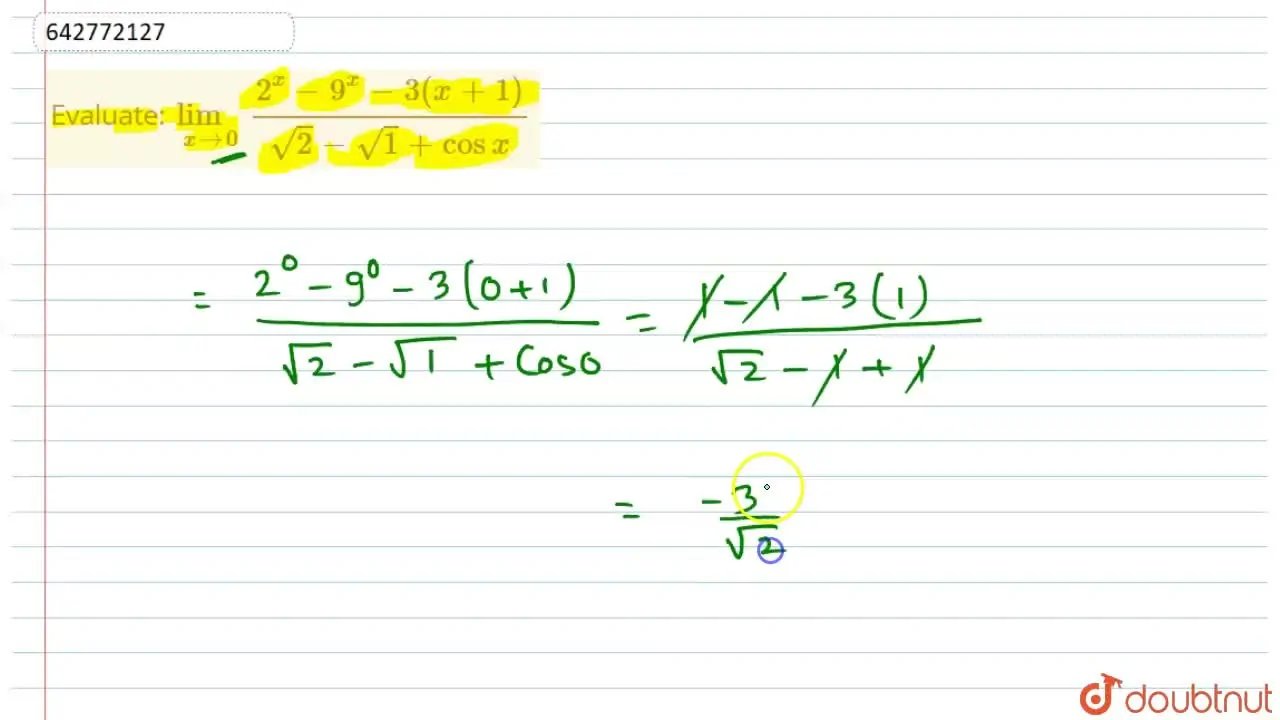 642772127
Evaluate: lim x→0 (2^x − 9^x − 3(x + 1)) / (√2 − √1 + cos x)
= (2^0 − 9^0 − 3(0+1)) / (√2 − √1 + Cos0) = (1 − 1 − 3(1)) / (√2 − 1 + 1)
= −3/√2
doubtnut